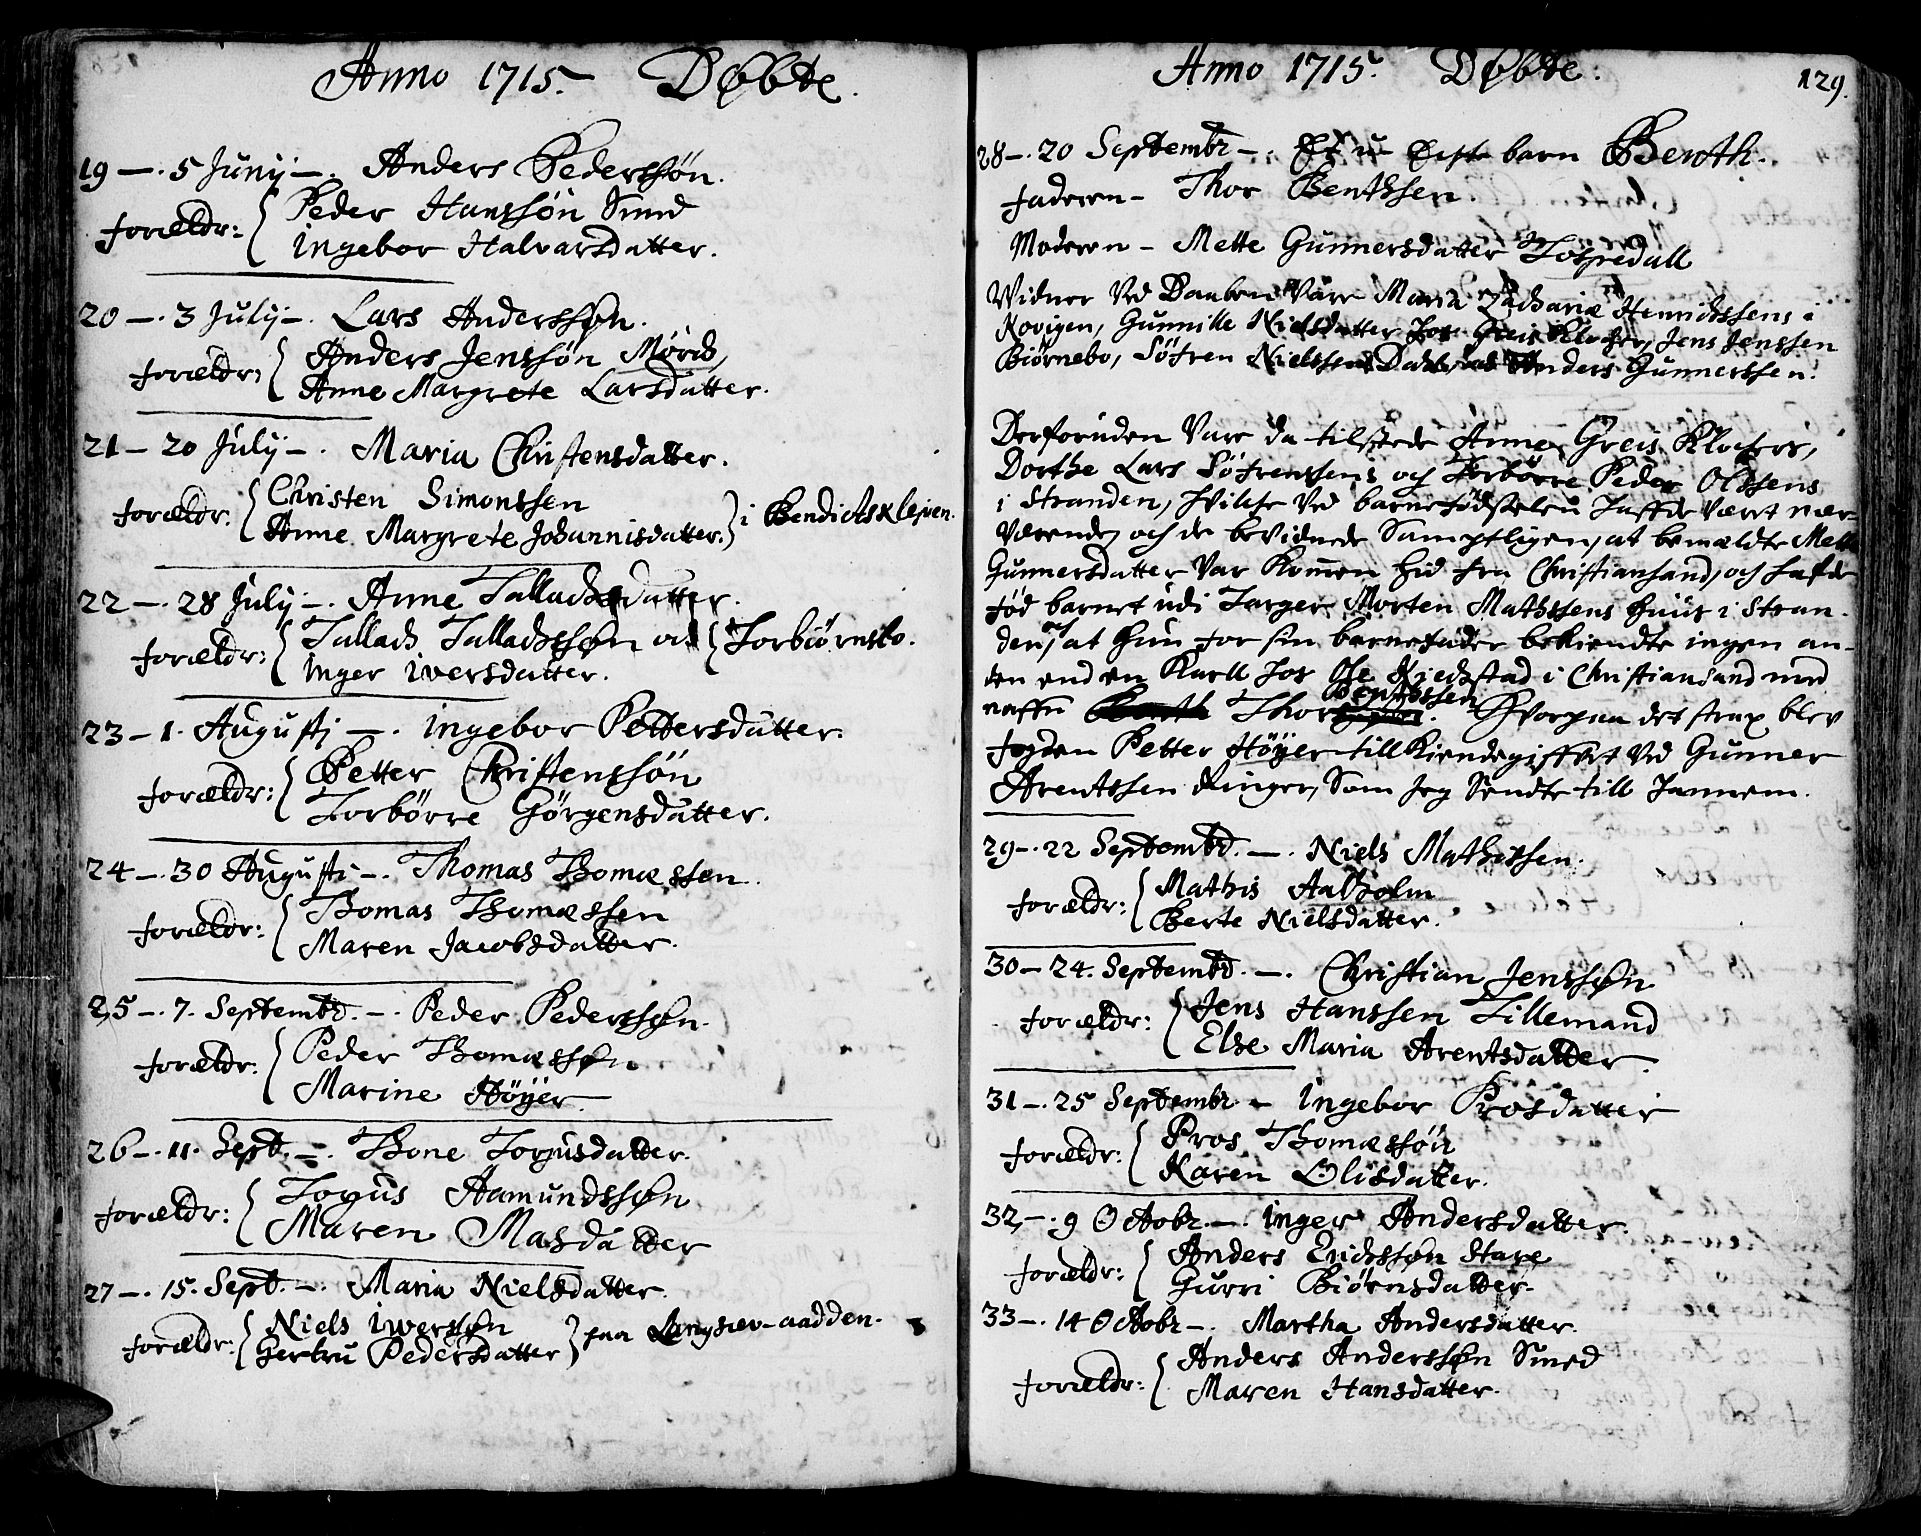 Anno 1715. Døbte.
19 —. 5 Junij —. Anders Pederssøn.
forældr: Peder Hanssøn Smed
Ingebor Halvarsdatter.
20 —. 3 Julij —. Lars Anderssøn.
forældr: Anders Jenssøn Mørch,
Anne Margrete Larsdatter.
21 — 20 Julij —. Maria Christensdatter.
forældr: Christen Simonssen
Anne Margrete Johannisdatter. i Bendictsklejven.
22 —. 28 Julij —. Anne Talladsdatter.
forældr: Tallach Talladssøn ved Torbiørnsbo.
Inger Iversdatter.
23 — 1. Augusti —. Ingebor Pettersdatter.
forældr: Petter Christenssøn
Torbørre Görgensdatter.
24 —. 30 Augusti —. Thomas Thomæssen.
forældr: Thomas Thomæssen
Maren Jacobsdatter.
25 —. 7. Septembr. —. Peder Pederssøn.
forældr: Peder Thomæssøn
Marine Höÿer.
26 —. 11. Sept. —. Thone Torjusdatter.
forældr: Torjus Aamundssøn
Maren Masdatter
27 —. 15. Sept. —. Maria Nielsdatter.
forældr: Niels Iverssøn
Gertru Pedersdatter paa Langsæv-aadden.
Anno 1715. Døbte: 129.
28 —. 20 Septembr —. Et u-Ecte barn Benth.
Faderen — Thor Benthssen.
Moderen — Mette Gunnersdatter
Widner ved Daaben vare Maria Zachariæ Henrichssens i
Kovigen, Gunnille Nielsdatter hos Greis Klocher, Jens Jenssen
Biørnebo, Söfren Nielssens Anders Gunnerssen.
Desforuden vare da tilstede Anne Greis Klochers,
Dorthe Lars Söfrenssens och Torbörre Peder Olssens
i Stranden, hvilche ved barnefødselen haffde været nær-
værende, och de bevidnede Samptligen, at bemældte Mette
Gunnersdatter var kommen hid fra Christiansand, och hafde
fød barnet udi Morten Mathssens huus i Stran-
den, at hun for sin barnefader bekiendte ingen an-
den end en Karll hos Ole Kiedstad i Christiansand ved
naffn Thor Benthssen. Hvorpaa det strax blev
fogden Petter Höÿer tillkiendegiffvet ved Gunner
Arentssen Ringer, Som jeg Sendte till hannem.
29 —. 22 Septembr. —. Niels Mathissen.
forældr: Mathis Aalholm
Berte Nielsdatter.
30 — 24. Septembr. —. Christian Jenssøn
forældr: Jens Hanssen Tillemand
Else Maria Arentsdatter.
31 —. 25 Septembr. — Ingebor Prosdatter
forældr: Pros Thomæssøn
Karen Olisdatter.
32 —. 9 Octobr. —. Inger Andersdatter.
forældr: Anders Erichssøn Stare
Gurri Biørnsdatter.
33 —. 14 Octobr —. Martha Andersdatter.
forældr: Anders Anderssøn Smed
Maren Hansdatter.